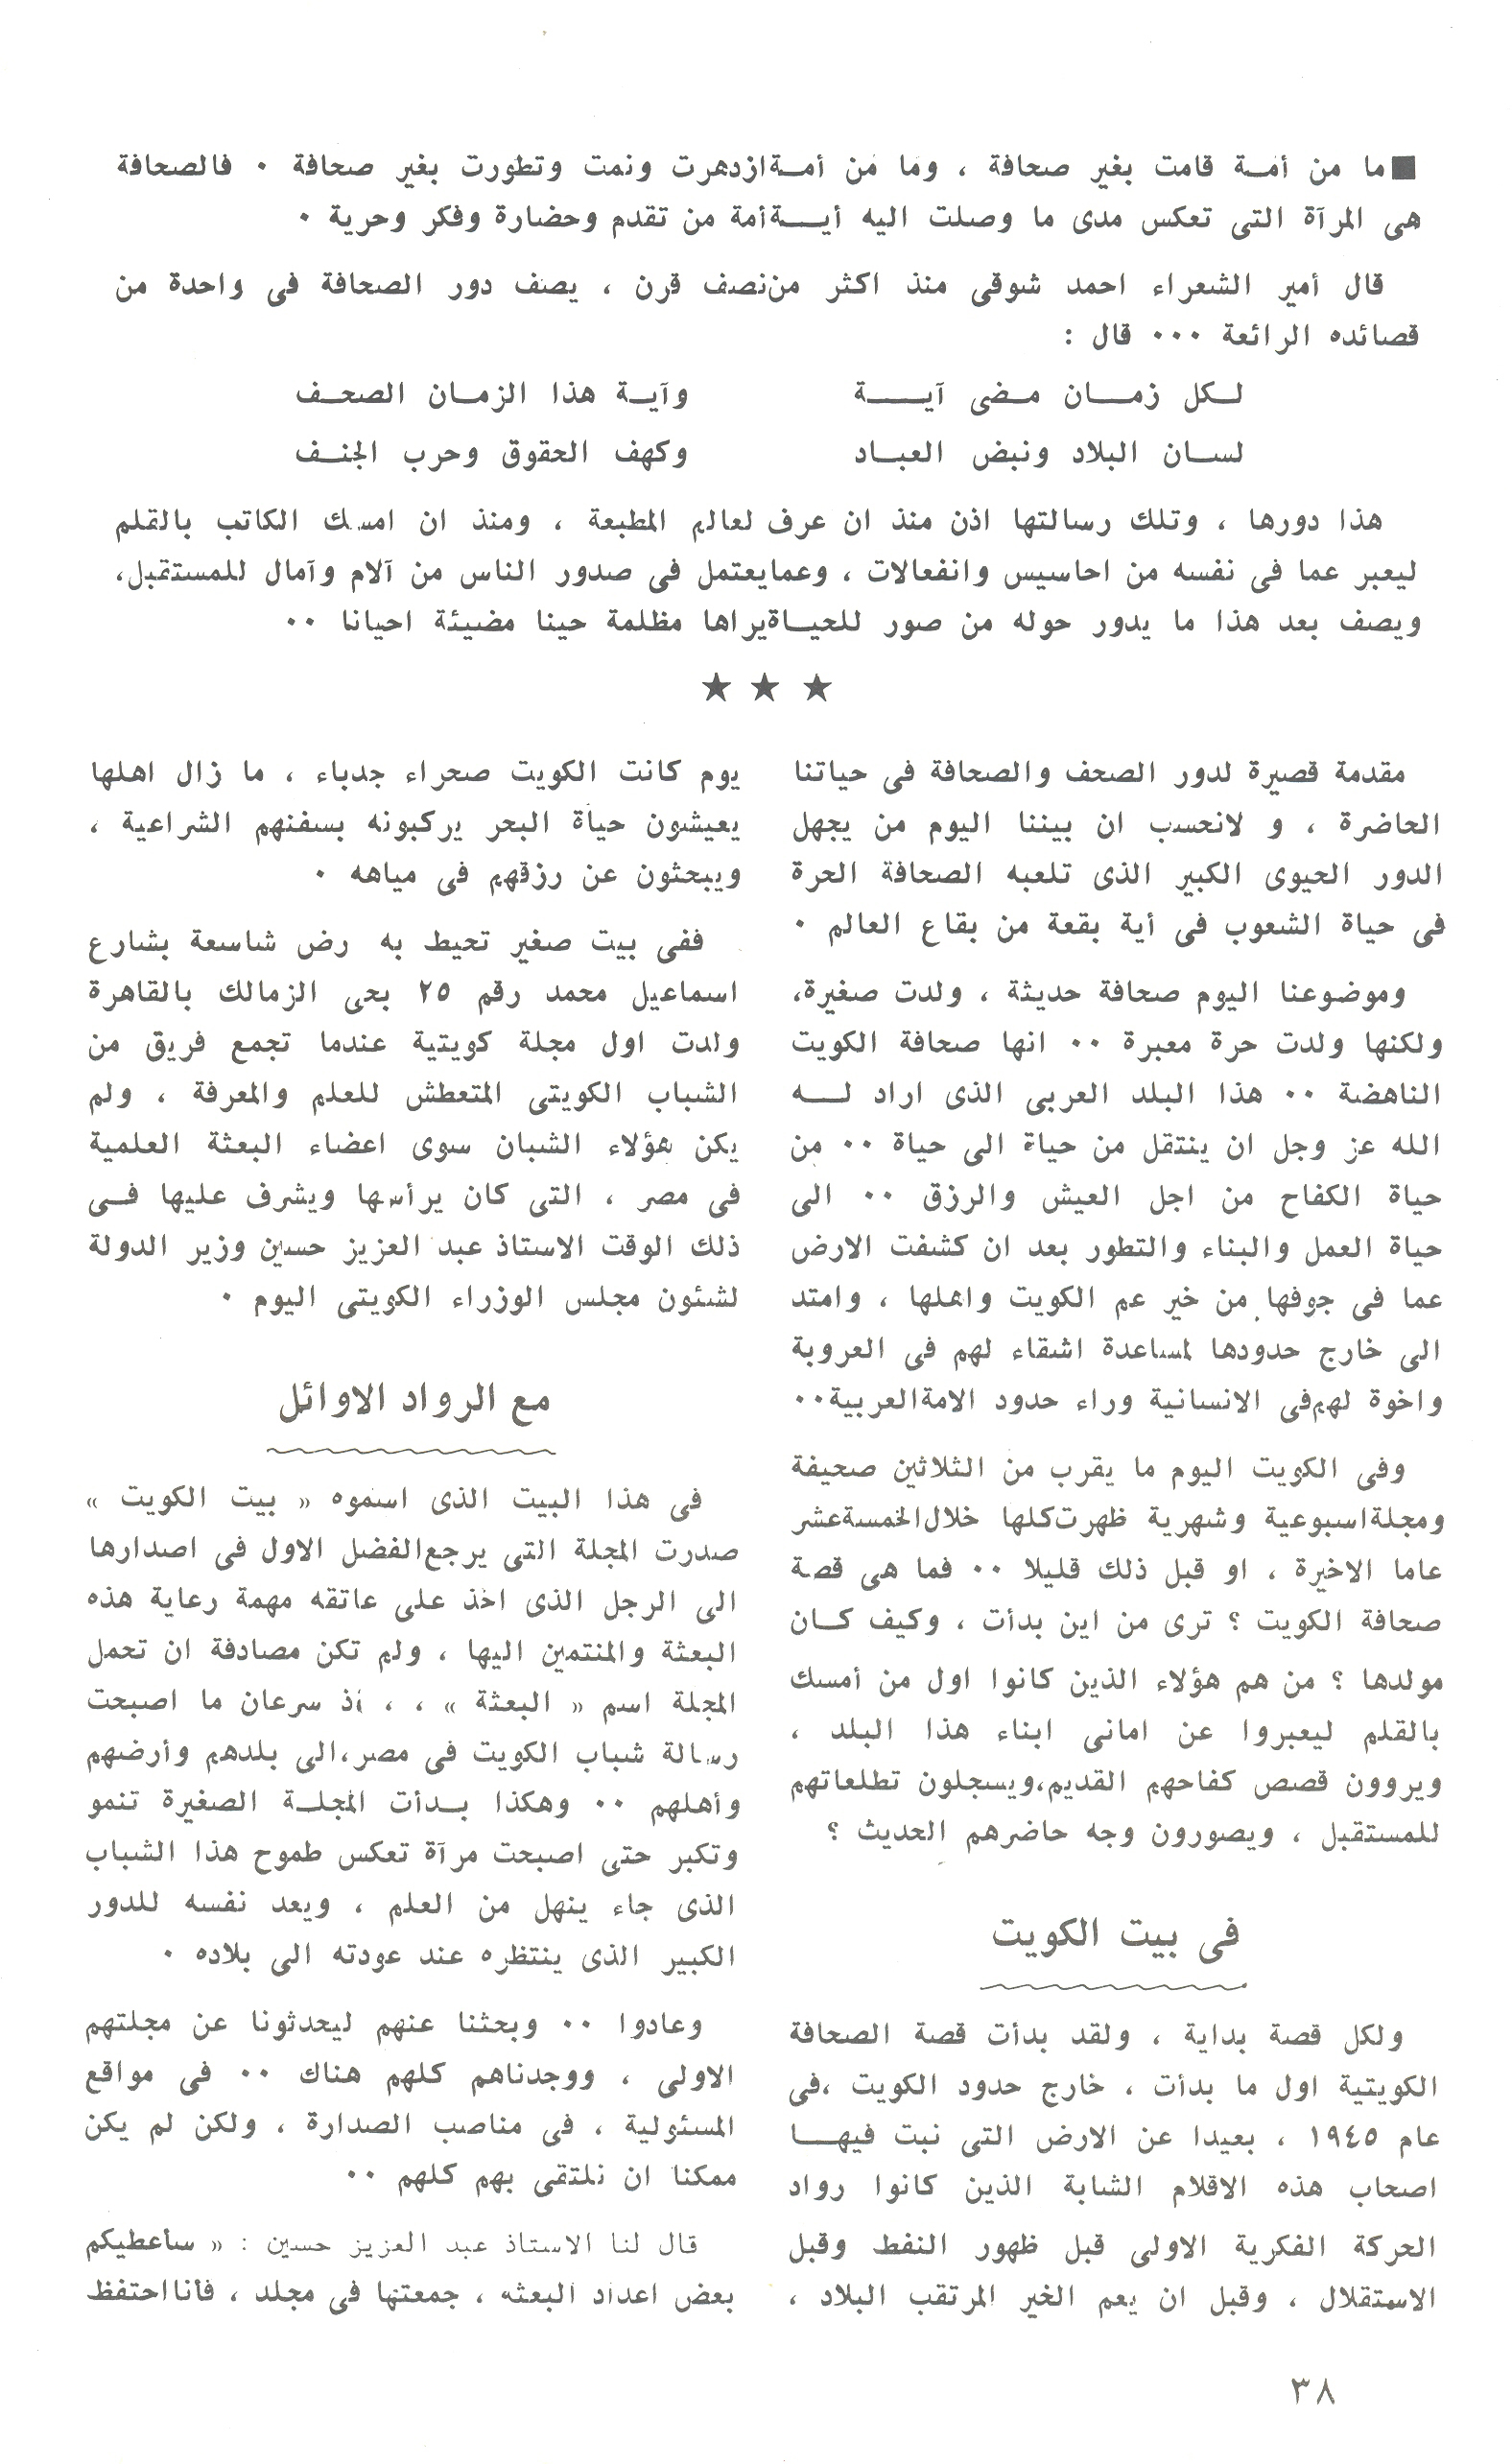 ■ ما من أمة قامت بغير صحافة ، وما من أمة ازدهرت ونمت وتطورت بغير صحافة ٠ فالصحافة
هى المرآة التى تعكس مدى ما وصلت اليه أية أمة من تقدم وحضارة وفكر وحرية ٠
قال أمير الشعراء احمد شوقى منذ اكثر من نصف قرن ، يصف دور الصحافة فى واحدة من
قصائده الرائعة ٠٠٠ قال :
لكل زمان مضى آية وآية هذا الزمان الصحف
لسان البلاد ونبض العباد وكهف الحقوق وحرب الجنف
هذا دورها ، وتلك رسالتها اذن منذ ان عرف لعالم المطبعة ، ومنذ ان امسك الكاتب بالقلم
ليعبر عما فى نفسه من احاسيس وانفعالات ، وعما يعتمل فى صدور الناس من آلام وآمال للمستقبل،
ويصف بعد هذا ما يدور حوله من صور للحياة يراها مظلمة حينا مضيئة احيانا ٠٠
★ ★ ★
مقدمة قصيرة لدور الصحف والصحافة فى حياتنا
الحاضرة ، و لانحسب ان بيننا اليوم من يجهل
الدور الحيوى الكبير الذى تلعبه الصحافة الحرة
فى حياة الشعوب فى أية بقعة من بقاع العالم ٠
وموضوعنا اليوم صحافة حديثة ، ولدت صغيرة،
ولكنها ولدت حرة معبرة ٠٠ انها صحافة الكويت
الناهضة ٠٠ هذا البلد العربى الذى اراد له
الله عز وجل ان ينتقل من حياة الى حياة ٠٠ من
حياة الكفاح من اجل العيش والرزق ٠٠ الى
حياة العمل والبناء والتطور بعد ان كشفت الارض
عما فى جوفها من خير عم الكويت واهلها ، وامتد
الى خارج حدودها لمساعدة اشقاء لهم فى العروبة
واخوة لهم فى الانسانية وراء حدود الامة العربية٠٠
وفى الكويت اليوم ما يقرب من الثلاثين صحيفة
ومجلة اسبوعية وشهرية ظهرت كلها خلال الخمسة عشر
عاما الاخيرة ، او قبل ذلك قليلا ٠٠ فما هى قصة
صحافة الكويت ؟ ترى من اين بدأت ، وكيف كان
مولدها ؟ من هم هؤلاء الذين كانوا اول من أمسك
بالقلم ليعبروا عن امانى ابناء هذا البلد ،
ويروون قصص كفاحهم القديم،ويسجلون تطلعاتهم
للمستقبل ، ويصورون وجه حاضرهم الحديث ؟
فى بيت الكويت
ولكل قصة بداية ، ولقد بدأت قصة الصحافة
الكويتية اول ما بدأت ، خارج حدود الكويت ،فى
عام ١٩٤٥ ، بعيدا عن الارض التى نبت فيها
اصحاب هذه الاقلام الشابة الذين كانوا رواد
الحركة الفكرية الاولى قبل ظهور النفط وقبل
الاستقلال ، وقبل ان يعم الخير المرتقب البلاد ،
يوم كانت الكويت صحراء جدباء ، ما زال اهلها
يعيشون حياة البحر يركبونه بسفنهم الشراعية ،
ويبحثون عن رزقهم فى مياهه ٠
ففى بيت صغير تحيط به رض شاسعة بشارع
اسماعيل محمد رقم ٢٥ بحى الزمالك بالقاهرة
ولدت اول مجلة كويتية عندما تجمع فريق من
الشباب الكويتى المتعطش للعلم والمعرفة ، ولم
يكن هؤلاء الشبان سوى اعضاء البعثة العلمية
فى مصر ، التى كان يرأسها ويشرف عليها فى
ذلك الوقت الاستاذ عبد العزيز حسين وزير الدولة
لشئون مجلس الوزراء الكويتى اليوم ٠
مع الرواد الاوائل
فى هذا البيت الذى اسموه « بيت الكويت »
صدرت المجلة التى يرجع الفضل الاول فى اصدارها
الى الرجل الذى اخذ على عاتقه مهمة رعاية هذه
البعثة والمنتمين اليها ، ولم تكن مصادفة ان تحمل
المجلة اسم « البعثة » ، ، أذ سرعان ما اصبحت
رسالة شباب الكويت فى مصر،الى بلدهم وأرضهم
وأهلهم ٠٠ وهكذا بدأت المجلة الصغيرة تنمو
وتكبر حتى اصبحت مرآة تعكس طموح هذا الشباب
الذى جاء ينهل من العلم ، ويعد نفسه للدور
الكبير الذى ينتظره عند عودته الى بلاده ٠
وعادوا ٠٠ وبحثنا عنهم ليحدثونا عن مجلتهم
الاولى ، ووجدناهم كلهم هناك ٠٠ فى مواقع
المسئولية ، فى مناصب الصدارة ، ولكن لم يكن
ممكنا ان نلتقى بهم كلهم ٠٠
قال لنا الاستاذ عبد العزيز حسين : « سأعطيكم
بعض اعداد البعثه ، جمعتها فى مجلد ، فأنا احتفظ
٣٨